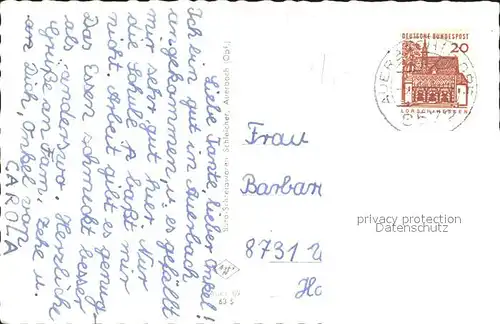 Liebe Tante, lieber Onkel!
Ich bin gut in Auerbach
angekommen, u. es gefällt
mir sehr gut hier. Nur
die Schule paßt mir
nicht. Arbeit gibt es genug.
Das Essen schmeckt besser
als anderswo. Herzliche
Grüße an Fam. Zehe u.
an Dich, Onkel von
CAROLA
Büro-Schreibwaren Schleicher, Auerbach (Opf.)
DEUTSCHE BUNDESPOST
20
LORSCH/HESSEN
Frau
Barbar
8731
privacy protection
Datenschutz